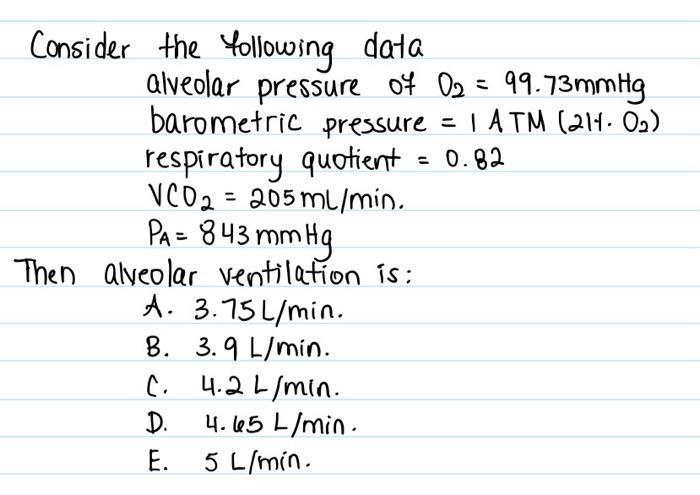 Consider the following data
alveolar pressure of O2 = 99.73mmHg
barometric pressure = 1 ATM (21%. O2)
respiratory quotient = 0.82
VCO2 = 205mL/min.
PA = 843 mmHg
Then alveolar ventilation is:
A. 3.75 L/min.
B. 3.9 L/min.
C. 4.2 L/min.
D. 4.65 L/min.
E. 5 L/min.